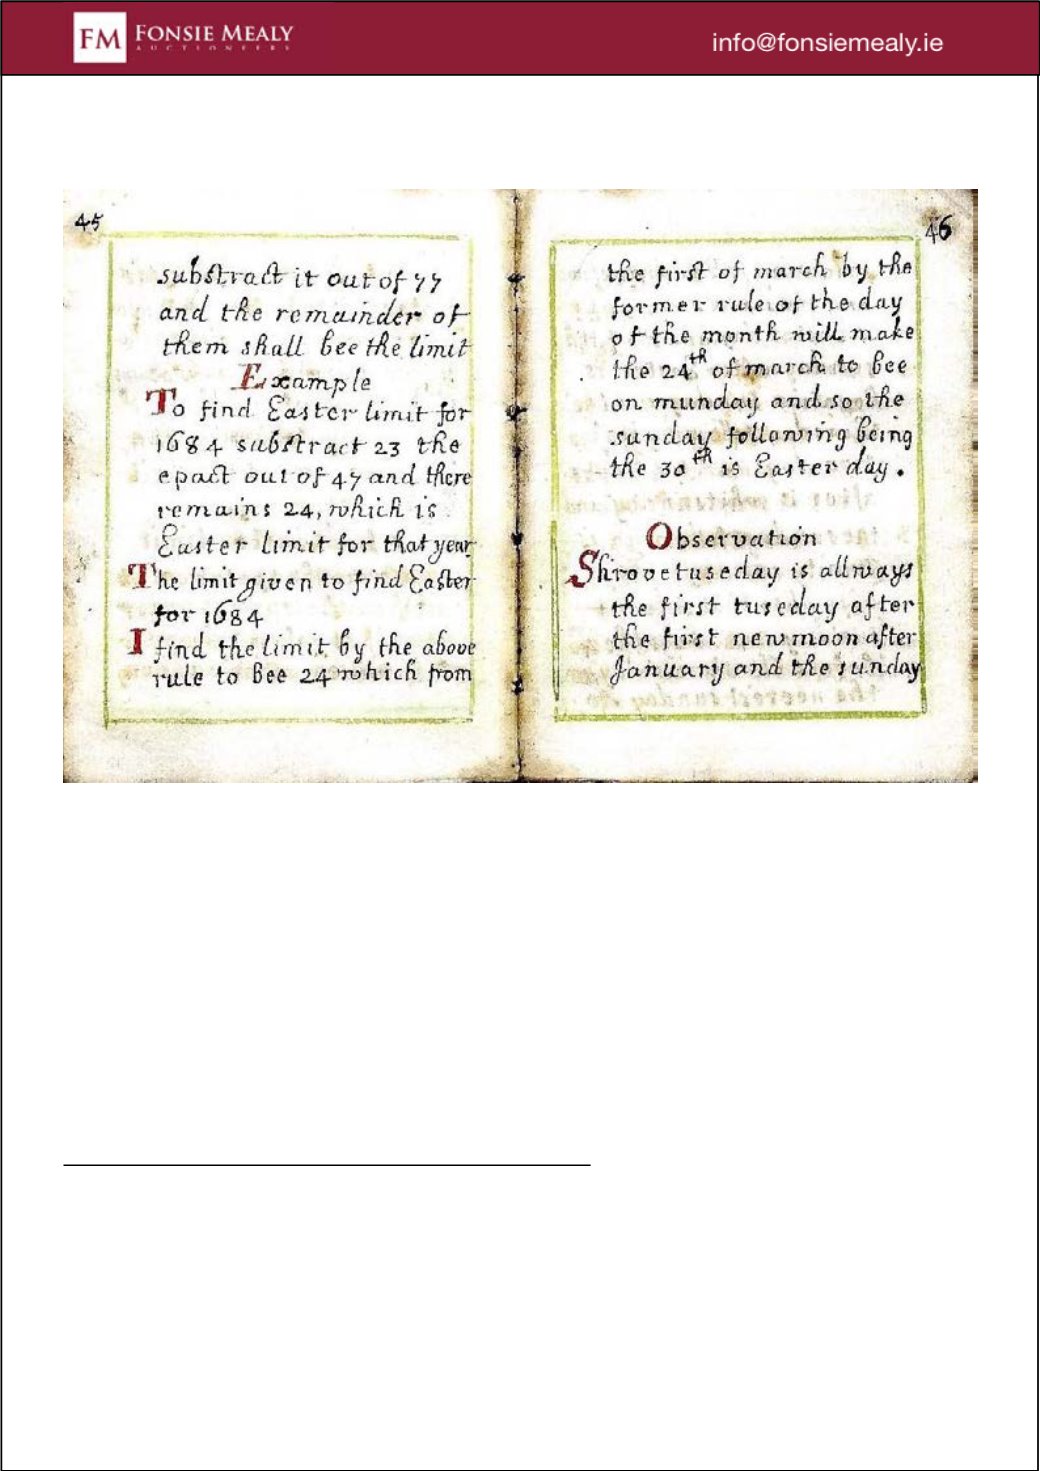 FM FONSIE MEALY
AUCTIONEERS
info@fonsiemealy.ie
45
substract it out of 77
and the remainder of
them shall bee the limit
Example
To find Easter limit for
1684 substract 23 the
epact out of 47 and there
remains 24, which is
Easter limit for that year
The limit given to find Easter
for 1684
I find the limit by the above
rule to bee 24 which from
46
the first of march by the
former rule of the day
of the month will make
the 24th of march to bee
on munday and so the
sunday following being
the 30th is Easter day.
Observation
Shrovetuseday is allways
the first tuseday after
the first new moon after
January and the sunday